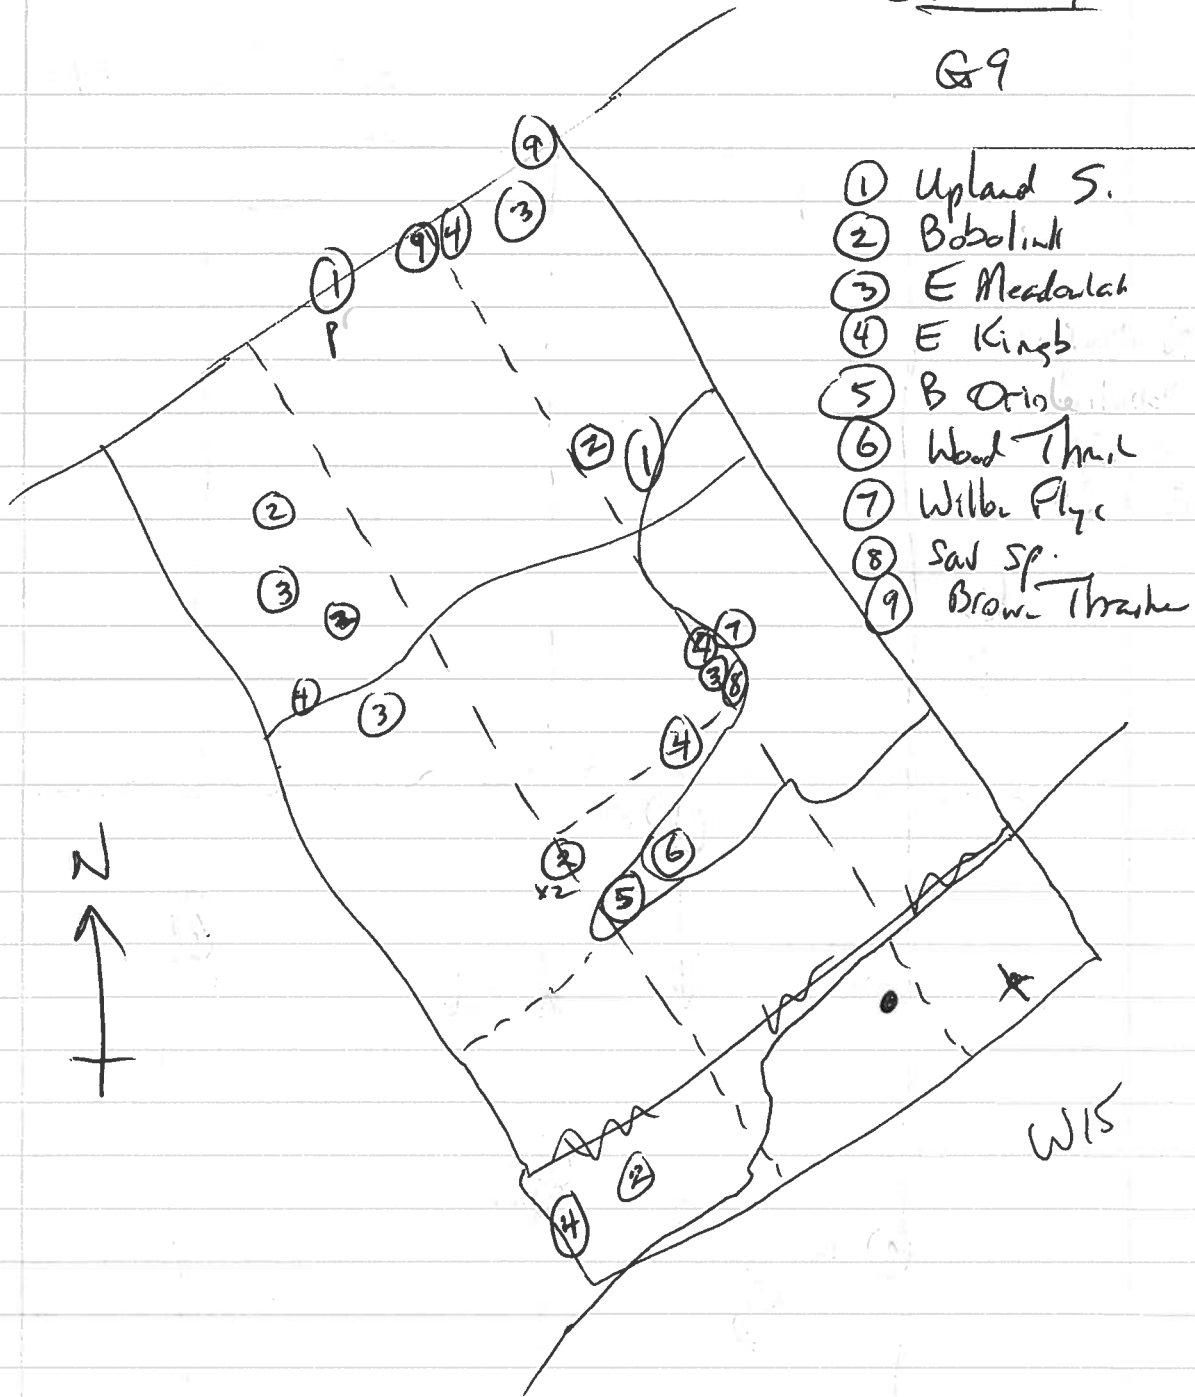 G9
① Upland S.
② Bobolink
③ E Meadowlark
④ E Kingb
⑤ B Oriole
⑥ Wood Thrush
⑦ Willow Flyc
⑧ Sav Sp.
⑨ Brown Thrasher
9
3
9 4
1
P
2 1
2
3
2
7
4
3 8
4
3
4
N
6
2
x2
5
W15
2
4